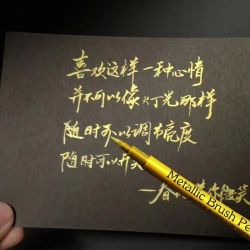 喜欢这样一种心情
并不可以像灯光那样
随时可以调节亮度
随时可以开
Metallic Brush Pe